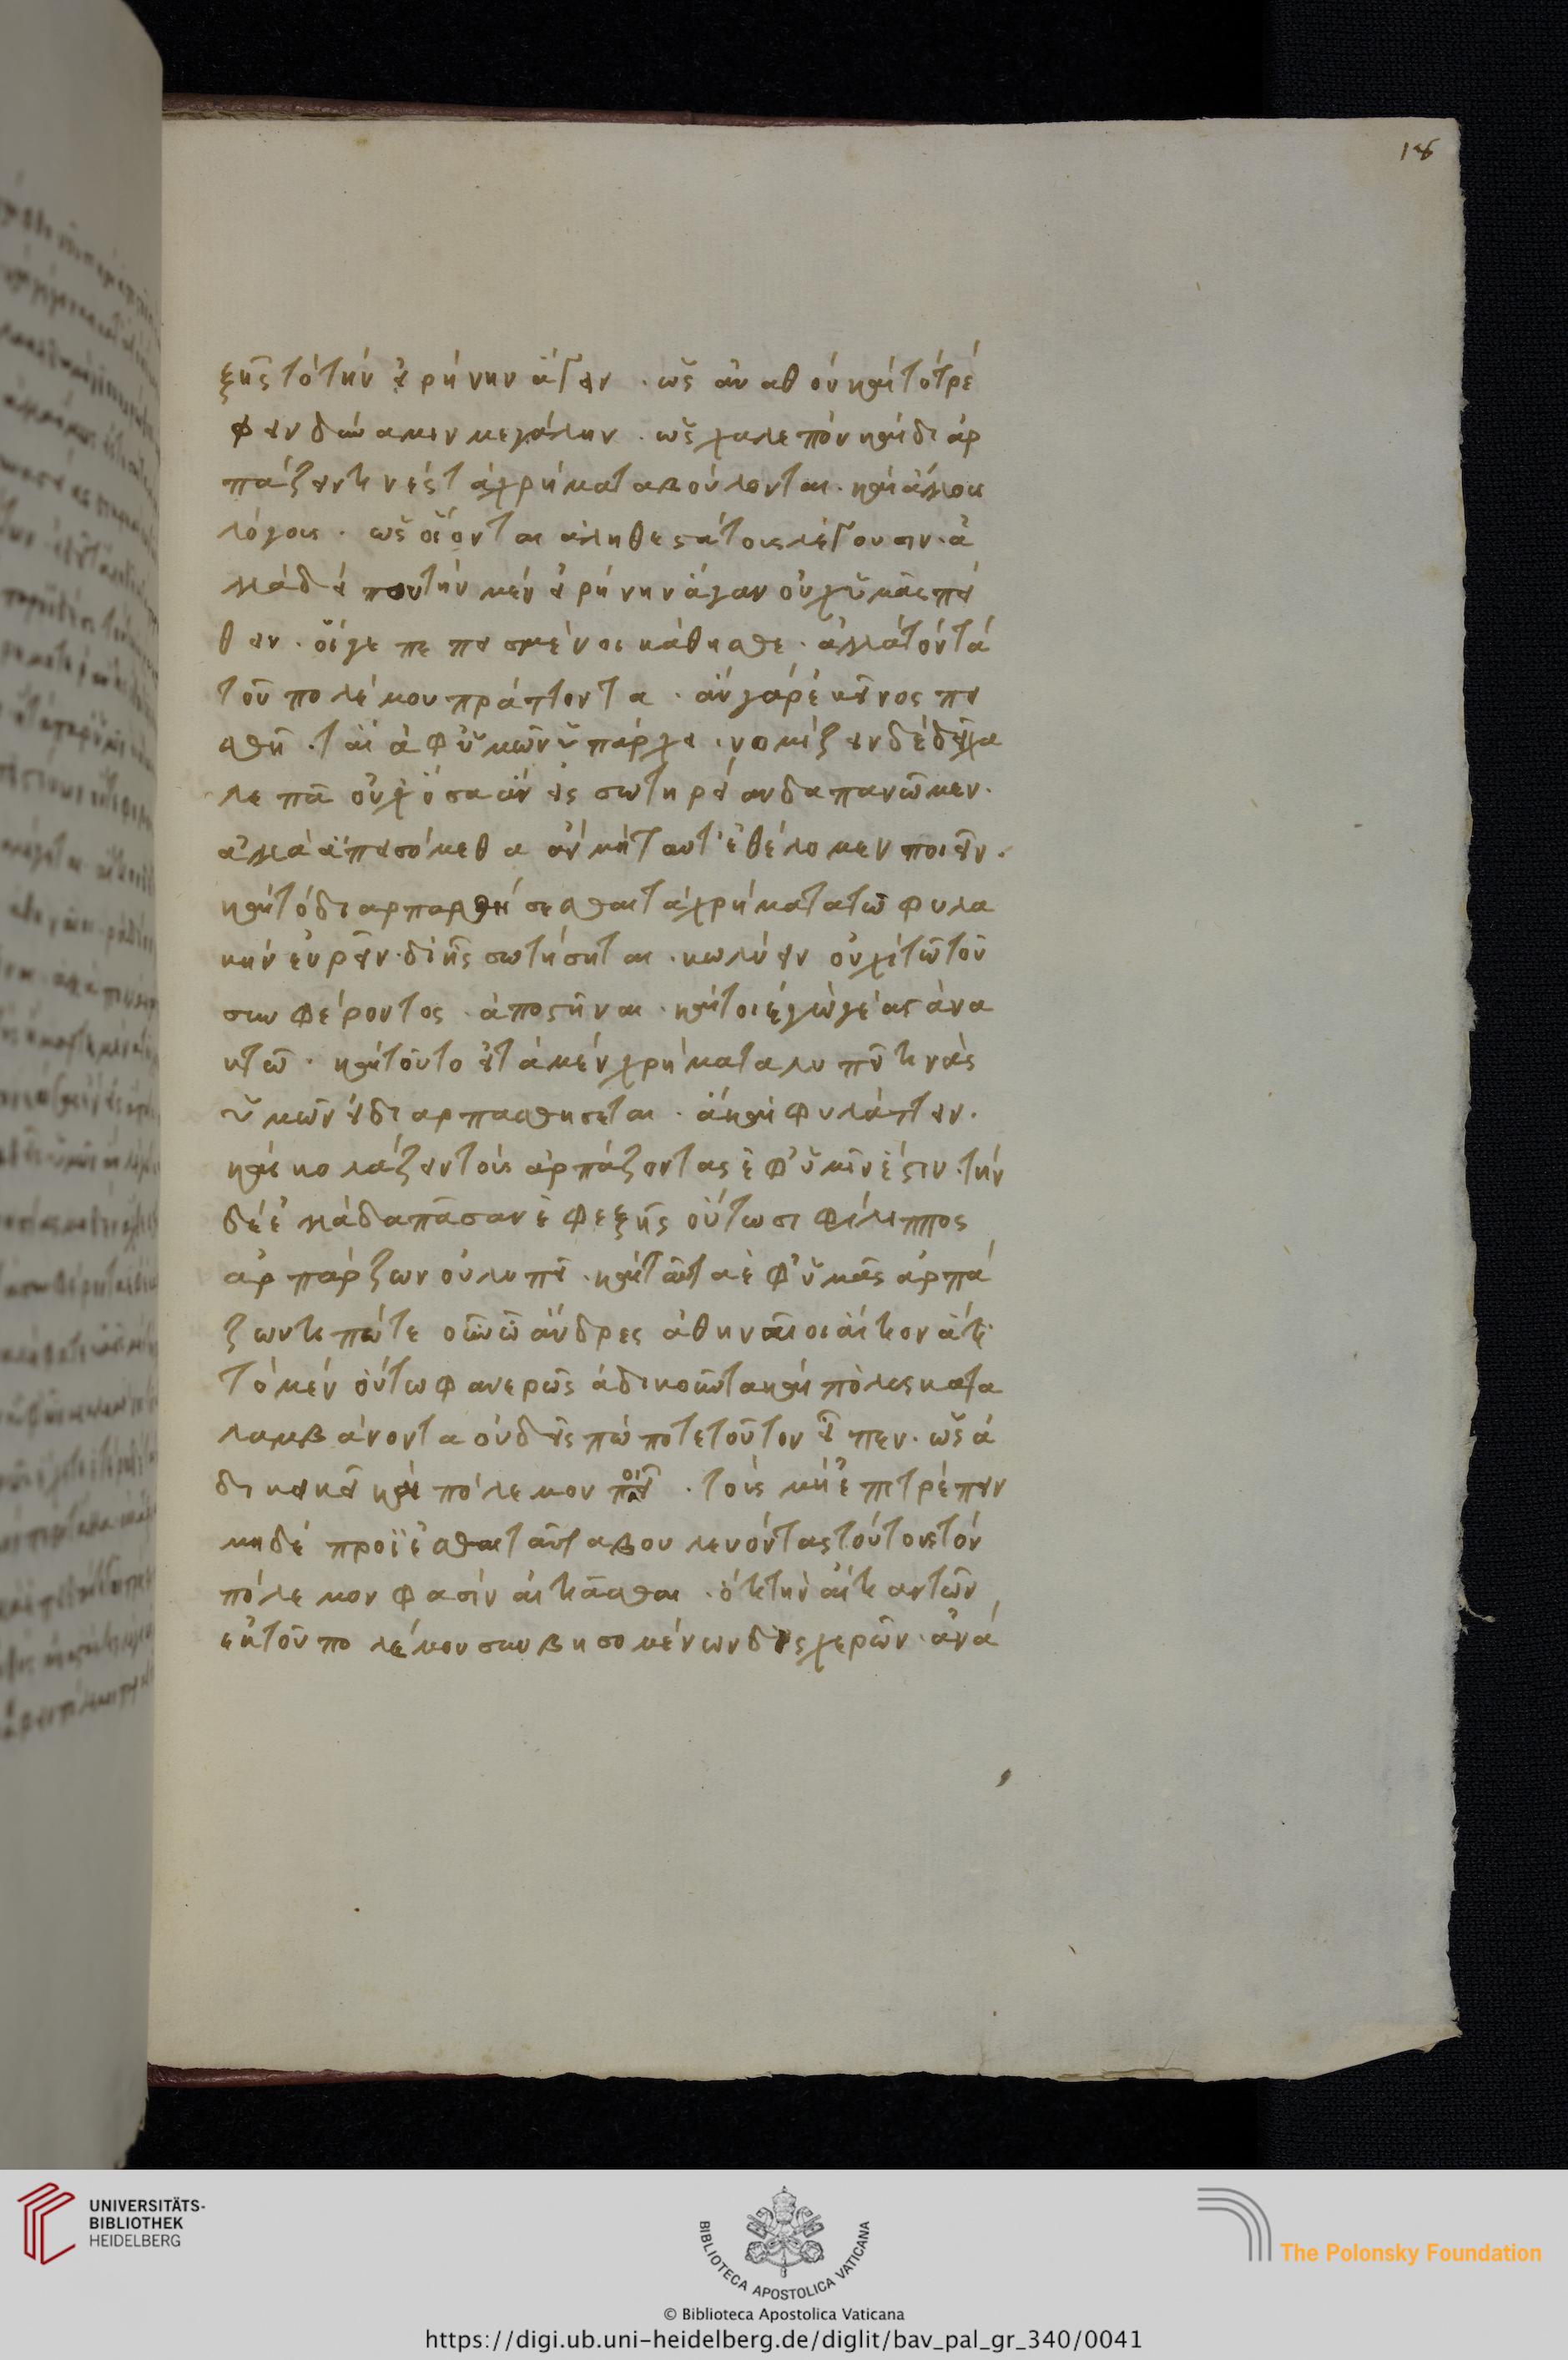 ξῆς τὸ τὴν εἰρήνην ἄγειν · ὡς ἀναθὸν καὶ τὸ τρέ
φειν δύναμιν μεγάλην · ὡς χαλεπὸν καὶ διαρ
πάζειν τινὲς τὰ χρήματα βούλονται · καὶ ἄλλους
λόγους · ὡς οἴονται ἀληθεστάτους λέγουσιν · ἀ
λλὰ δεῖ που τὴν μὲν εἰρήνην ἄγειν οὐχ ὑμᾶς πεί
θειν · οἵ γε πεπεισμένοι κάθησθε · ἀλλὰ τὸν τὰ
τοῦ πολέμου πράττοντα · ἂν γὰρ ἐκεῖνος πει
σθῆ · τὰ ἀφ' ὑμῶν ὑπάρχει · νομίζειν δὲ δεῖ χα
λεπὰ οὐχ ὅσα ἂν εἰς σωτηρίαν δαπανῶμεν ·
ἀλλὰ ἃ πεισόμεθα ἂν μὴ ταῦτ' ἐθέλομεν ποιεῖν ·
καὶ τὸ διαρπασθήσεσθαι τὰ χρήματα τῶ φυλα
κὴν εὑρεῖν · δι' ἧς σωτήσηται · κωλύειν οὐχὶ τῶ τοῦ
συμφέροντος · ἀποστῆναι · καίτοι ἔγωγε ἀγανα
κτῶ · καὶ τοῦτο εἰ τὰ μὲν χρήματα λυπεῖ τινὰς
ὑμῶν εἰ διαρπασθήσεται · ἃ καὶ φυλάττειν ·
καὶ κολάζειν τοὺς ἁρπάζοντας ἐφ' ὑμῖν ἐστιν · τὴν
δὲ ἑλλάδα πᾶσαν ἐφεξῆς οὑτωσὶ Φίλιππος
ἁρπάζων οὐ λυπεῖ · καὶ ταῦτα ἐφ' ὑμᾶς ἁρπά
ζων τί πότε οὖν ὦ ἄνδρες ἀθηναῖοι αἴτιον ὅτι
τὸ μὲν οὕτω φανερῶς ἀδικοῦντα καὶ πόλεις κατα
λαμβάνοντα οὐδεὶς πώποτε τοῦτον εἶπεν · ὡς ἀ
δικεῖ καὶ πόλεμον ποιεῖ · τοὺς μὴ ἐπιτρέπειν
μηδὲ προΐεσθαι ταῦτα βουλεύοντας τούτους τὸν
πόλεμον φασὶν αἰτιᾶσθαι · ὅτι τὴν αἰτίαν τῶν
ἐκ τοῦ πολέμου συμβησομένων δυσχερῶν · ἀνα
UNIVERSITÄTS-
BIBLIOTHEK
HEIDELBERG
BIBLIOTECA APOSTOLICA VATICANA
The Polonsky Foundation
© Biblioteca Apostolica Vaticana
https://digi.ub.uni-heidelberg.de/diglit/bav_pal_gr_340/0041